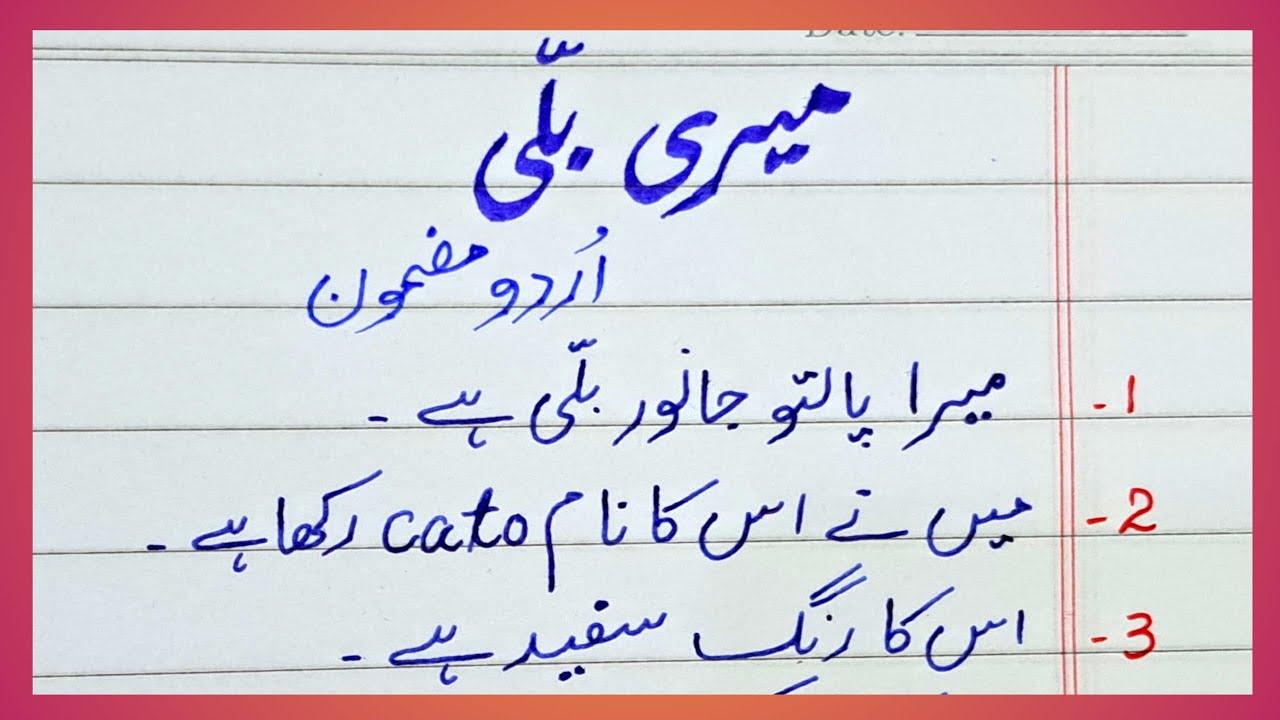 Date:
میری بلّی
اُردو مضمون
1- میرا پالتو جانور بلّی ہے ۔
2- میں نے اس کا نام cato رکھا ہے ۔
3- اس کا رنگ سفید ہے ۔